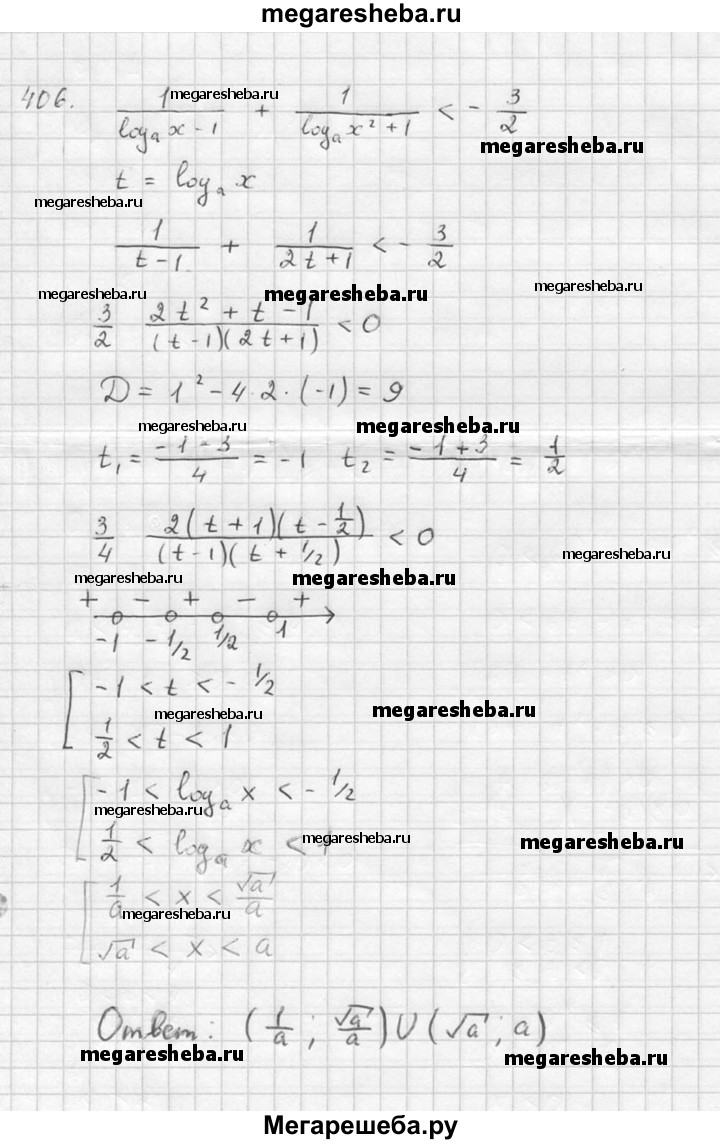 megaresheba.ru
406. 1/(logₐ x - 1) + 1/(logₐ x² + 1) < - 3/2
megaresheba.ru
megaresheba.ru
t = logₐ x
megaresheba.ru
1/(t - 1) + 1/(2t + 1) < - 3/2
megaresheba.ru
megaresheba.ru
megaresheba.ru
3/2 (2t² + t - 1)/((t - 1)(2t + 1)) < 0
D = 1² - 4·2·(-1) = 9
megaresheba.ru
megaresheba.ru
t₁ = (-1 - 3)/4 = -1 t₂ = (-1 + 3)/4 = 1/2
3/4 2(t + 1)(t - 1/2)/((t - 1)(t + 1/2)) < 0
megaresheba.ru
megaresheba.ru
megaresheba.ru
+ - + - +
-1 -1/2 1/2 1
-1 < t < - 1/2
megaresheba.ru
megaresheba.ru
1/2 < t < 1
-1 < logₐ x < - 1/2
megaresheba.ru
1/2 < logₐ x <
megaresheba.ru
megaresheba.ru
1/a < x < √a/a
megaresheba.ru
√a < x < a
Ответ: (1/a ; √a/a) U (√a ; a)
megaresheba.ru
megaresheba.ru
Мегарешеба.ру